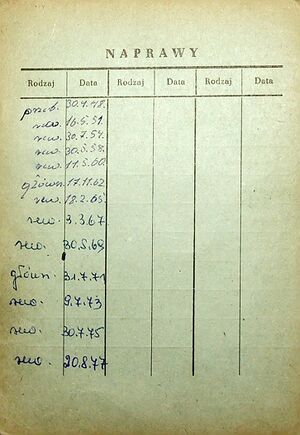 NAPRAWY
Rodzaj Data Rodzaj Data Rodzaj Data
przeb. 30.4.48.
rew. 16.5.51.
rew. 30.7.54.
rew. 30.5.58.
rew. 11.5.60.
główn. 17.11.62
rew. 18.2.65.
rew. 3.3.67.
rew. 30.5.69
główn. 31.7.71
rew. 9.7.73
rew. 30.7.75
rew. 20.8.77